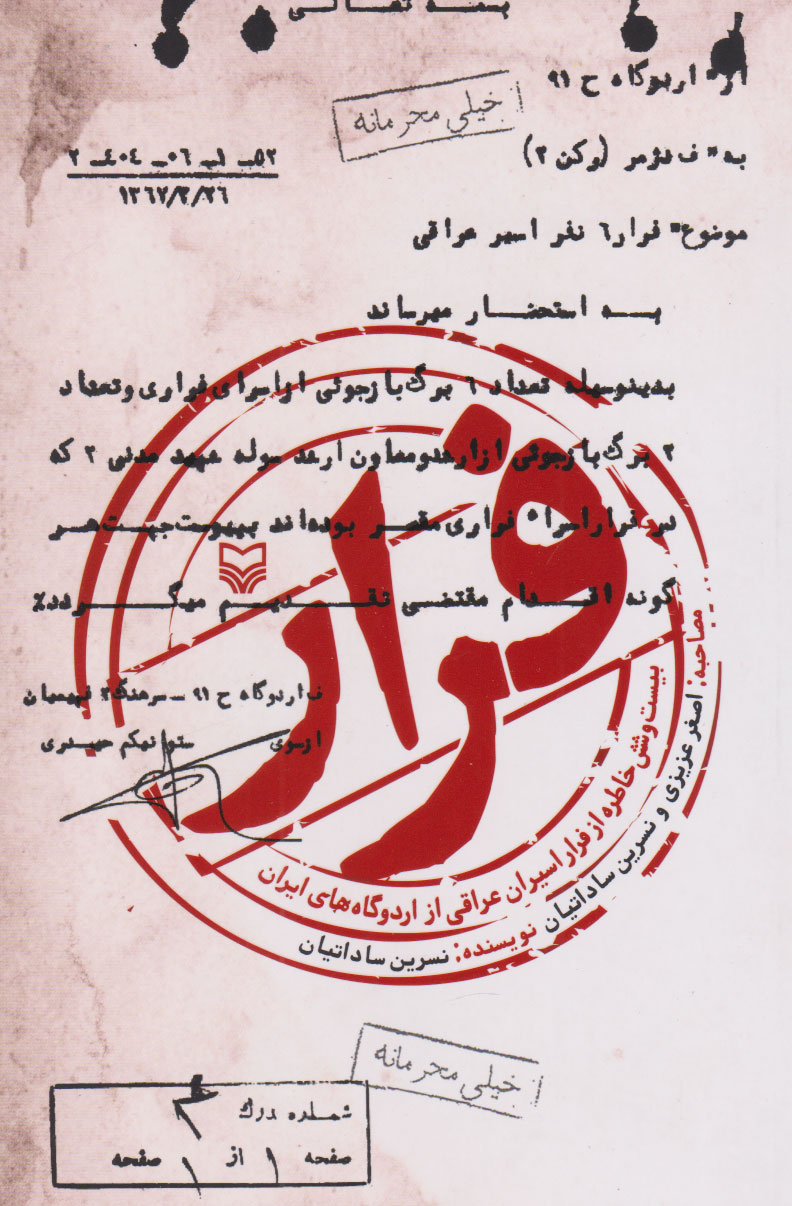 بسمه تعالی
از" اردوگاه ح ٩١
خیلی محرمانه
به" ف دژمر (رکن ٢)
٥٢ـ ١ـ ٠٦ـ ٤٠٤ـ ٢
١٣٦٧/٢/٢٦
موضوع" فرار ٦ نفر اسیر عراقی
به استحضار میرساند
بدینوسیله تعداد ٦ برگ بازجوئی ازاسرای فراری وتعداد
٢ برگ بازجوئی ازارشدومعاون ارشد سوله شهید مدنی ٢ که
در فراراسراء فراری مقصر بوده‌اند بپیوست جهت هر
گونه اقدام مقتضی تقدیم میگردد٪
ف اردوگاه ح ٩١ ــ سرهنگ٢ فهیمیان
ازسوی ستوانیکم حیدری
فرار
بیست و شش خاطره از فرار اسیران عراقی از اردوگاه‌های ایران
مصاحبه: اصغر عزیزی و نسرین ساداتیان
نویسنده: نسرین ساداتیان
خیلی محرمانه
شماره مدرک ٢
صفحه ١ از ١ صفحه